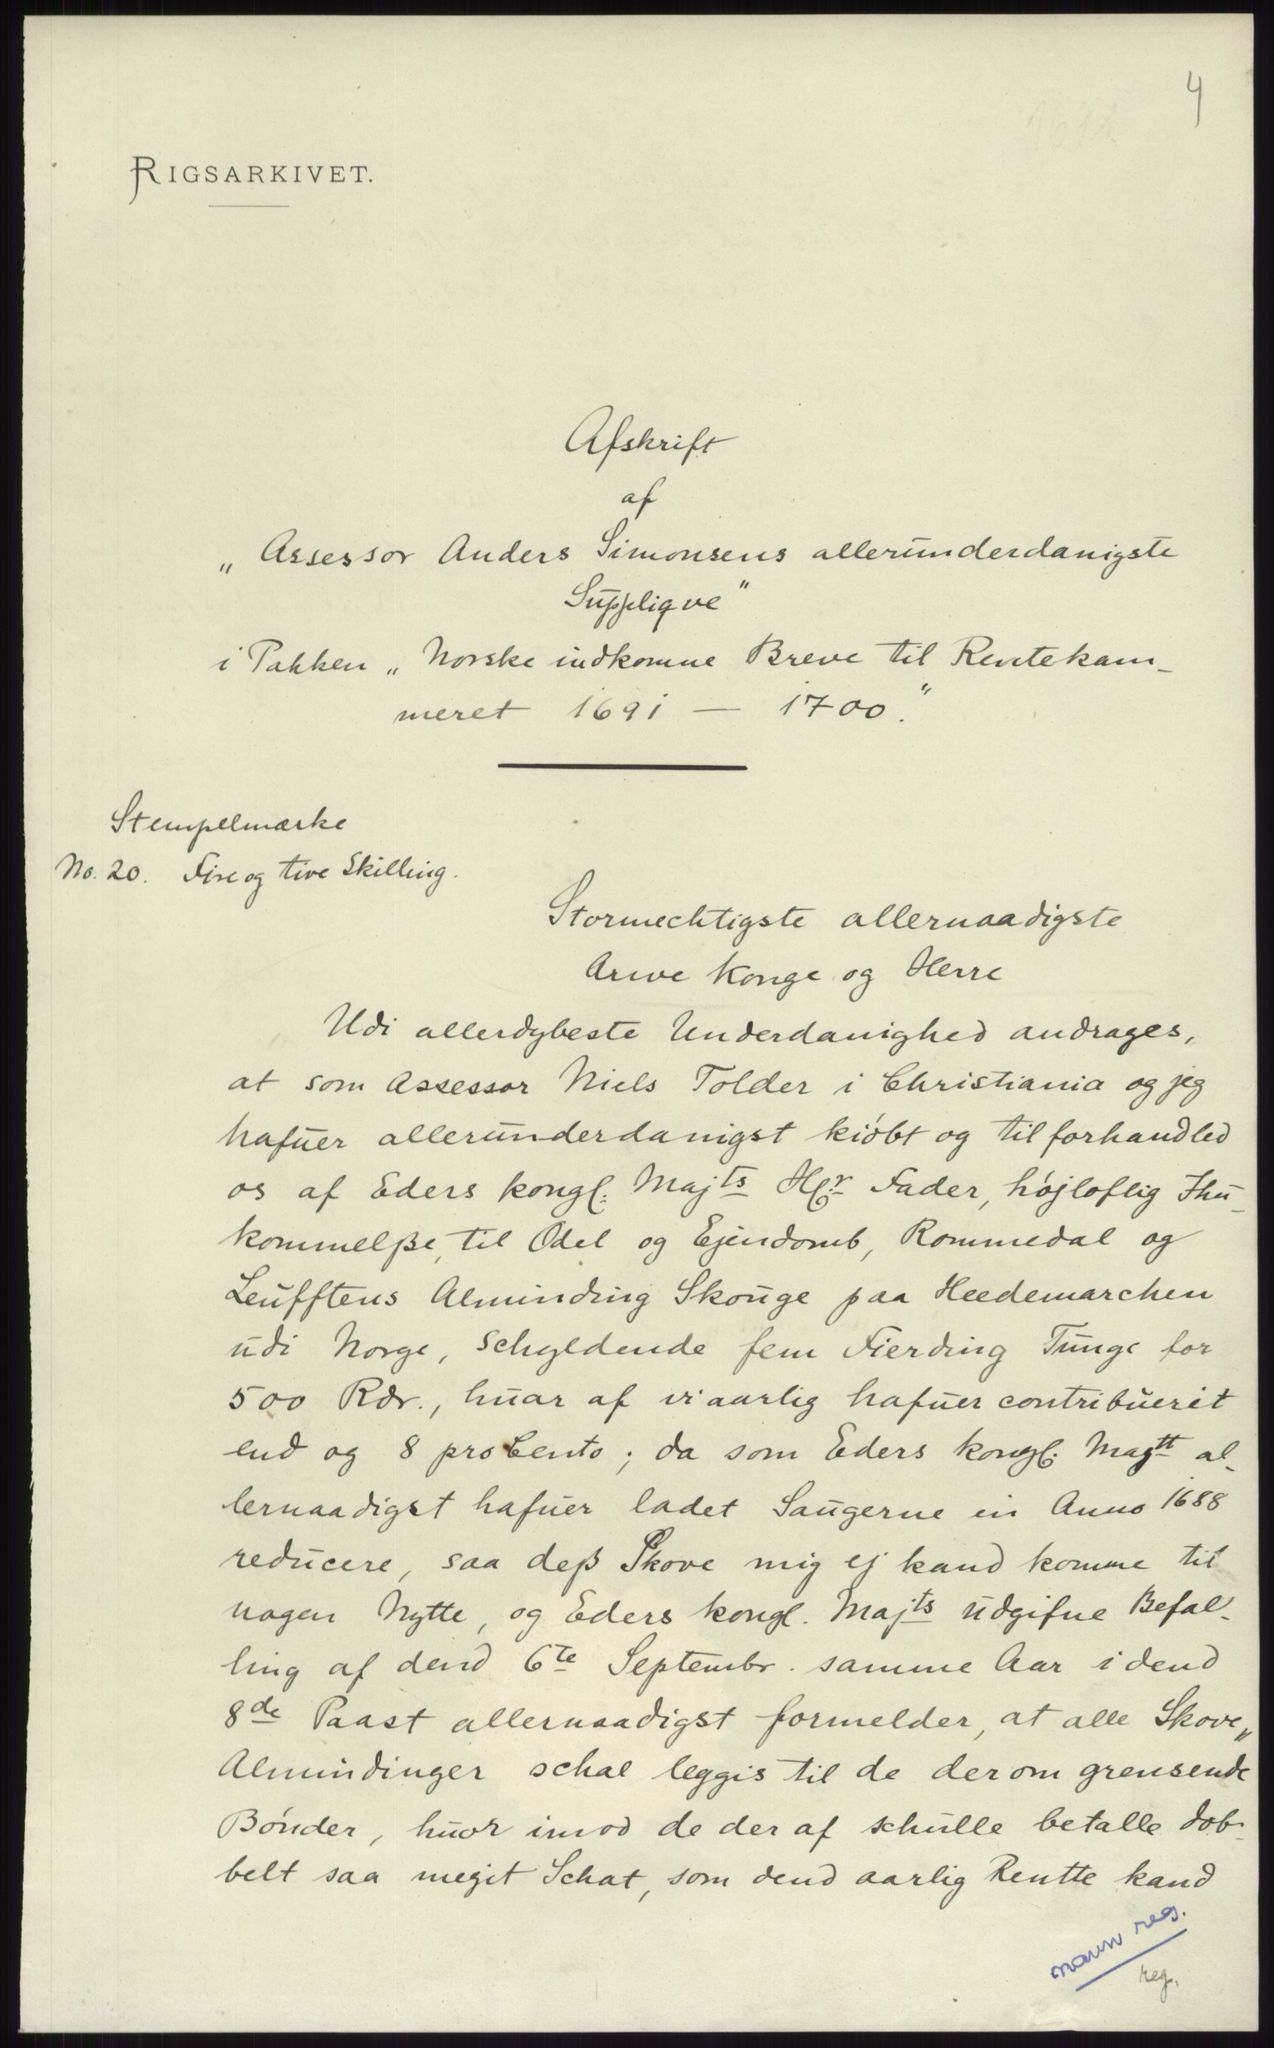 4
RIGSARKIVET.
Afskrift
af
„Assessor Anders Simonsens allerunderdanigste
Suppliqve"
i Pakken „Norske indkomne Breve til Rentekam-
meret 1691 — 1700."
Stempelmærke
No. 20. Fire og tive Skilling.
Stormechtigste allernaadigste
Arwe Konge og Herre
Udi allerdybeste Underdanighed andrages,
at som Assessor Niels Tolder i Christiania og jeg
hafuer allerunderdanigst kiöbt og tilforhandled
os af Eders kongl. Majts Hr Fader, höjloflig Ihu-
kommelsse, til Odel og Ejendomb, Rommedal og
Leufftens Alminding Skouge paa Heedemarchen
udi Norge, schyldende fem Fierding Tunge for
500 Rdr., huar af vi aarlig hafuer contribuerit
end og 8 pro Cento; da som Eders kongl. Magtt al-
lernaadigst hafuer ladet Saugerne in Anno 1688
reducere, saa dess Skove mig ej kand komme til
nogen Nytte, og Eders kongl. Majts udgifne Befal-
ling af dend 6te Septembr. samme Aar i dend
8de Paast allernaadigst formelder, at alle Skove„
Almindinger schal leggis til de derom grensende
Bönder, huor imod de der af schulle betalle dob-
belt saa megit Schat, som dend aarlig Rentte kand
navn reg.
reg.